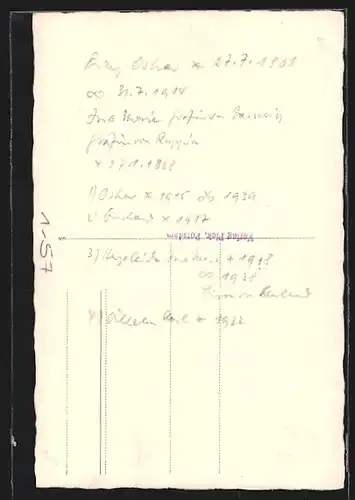 Prinz Oskar * 27.7.1888
∞ 31.7.1914
Ina Marie Gräfin von Bassewitz
Gräfin von Ruppin
* 27.1.1888
1) Oskar * 1915 1939
2) * 1917
3) Herzeleide * 1918
∞ 1938
Biron von Kurland
4) Wilhelm Karl * 1922
Verlag Pick, Potsdam
1-57